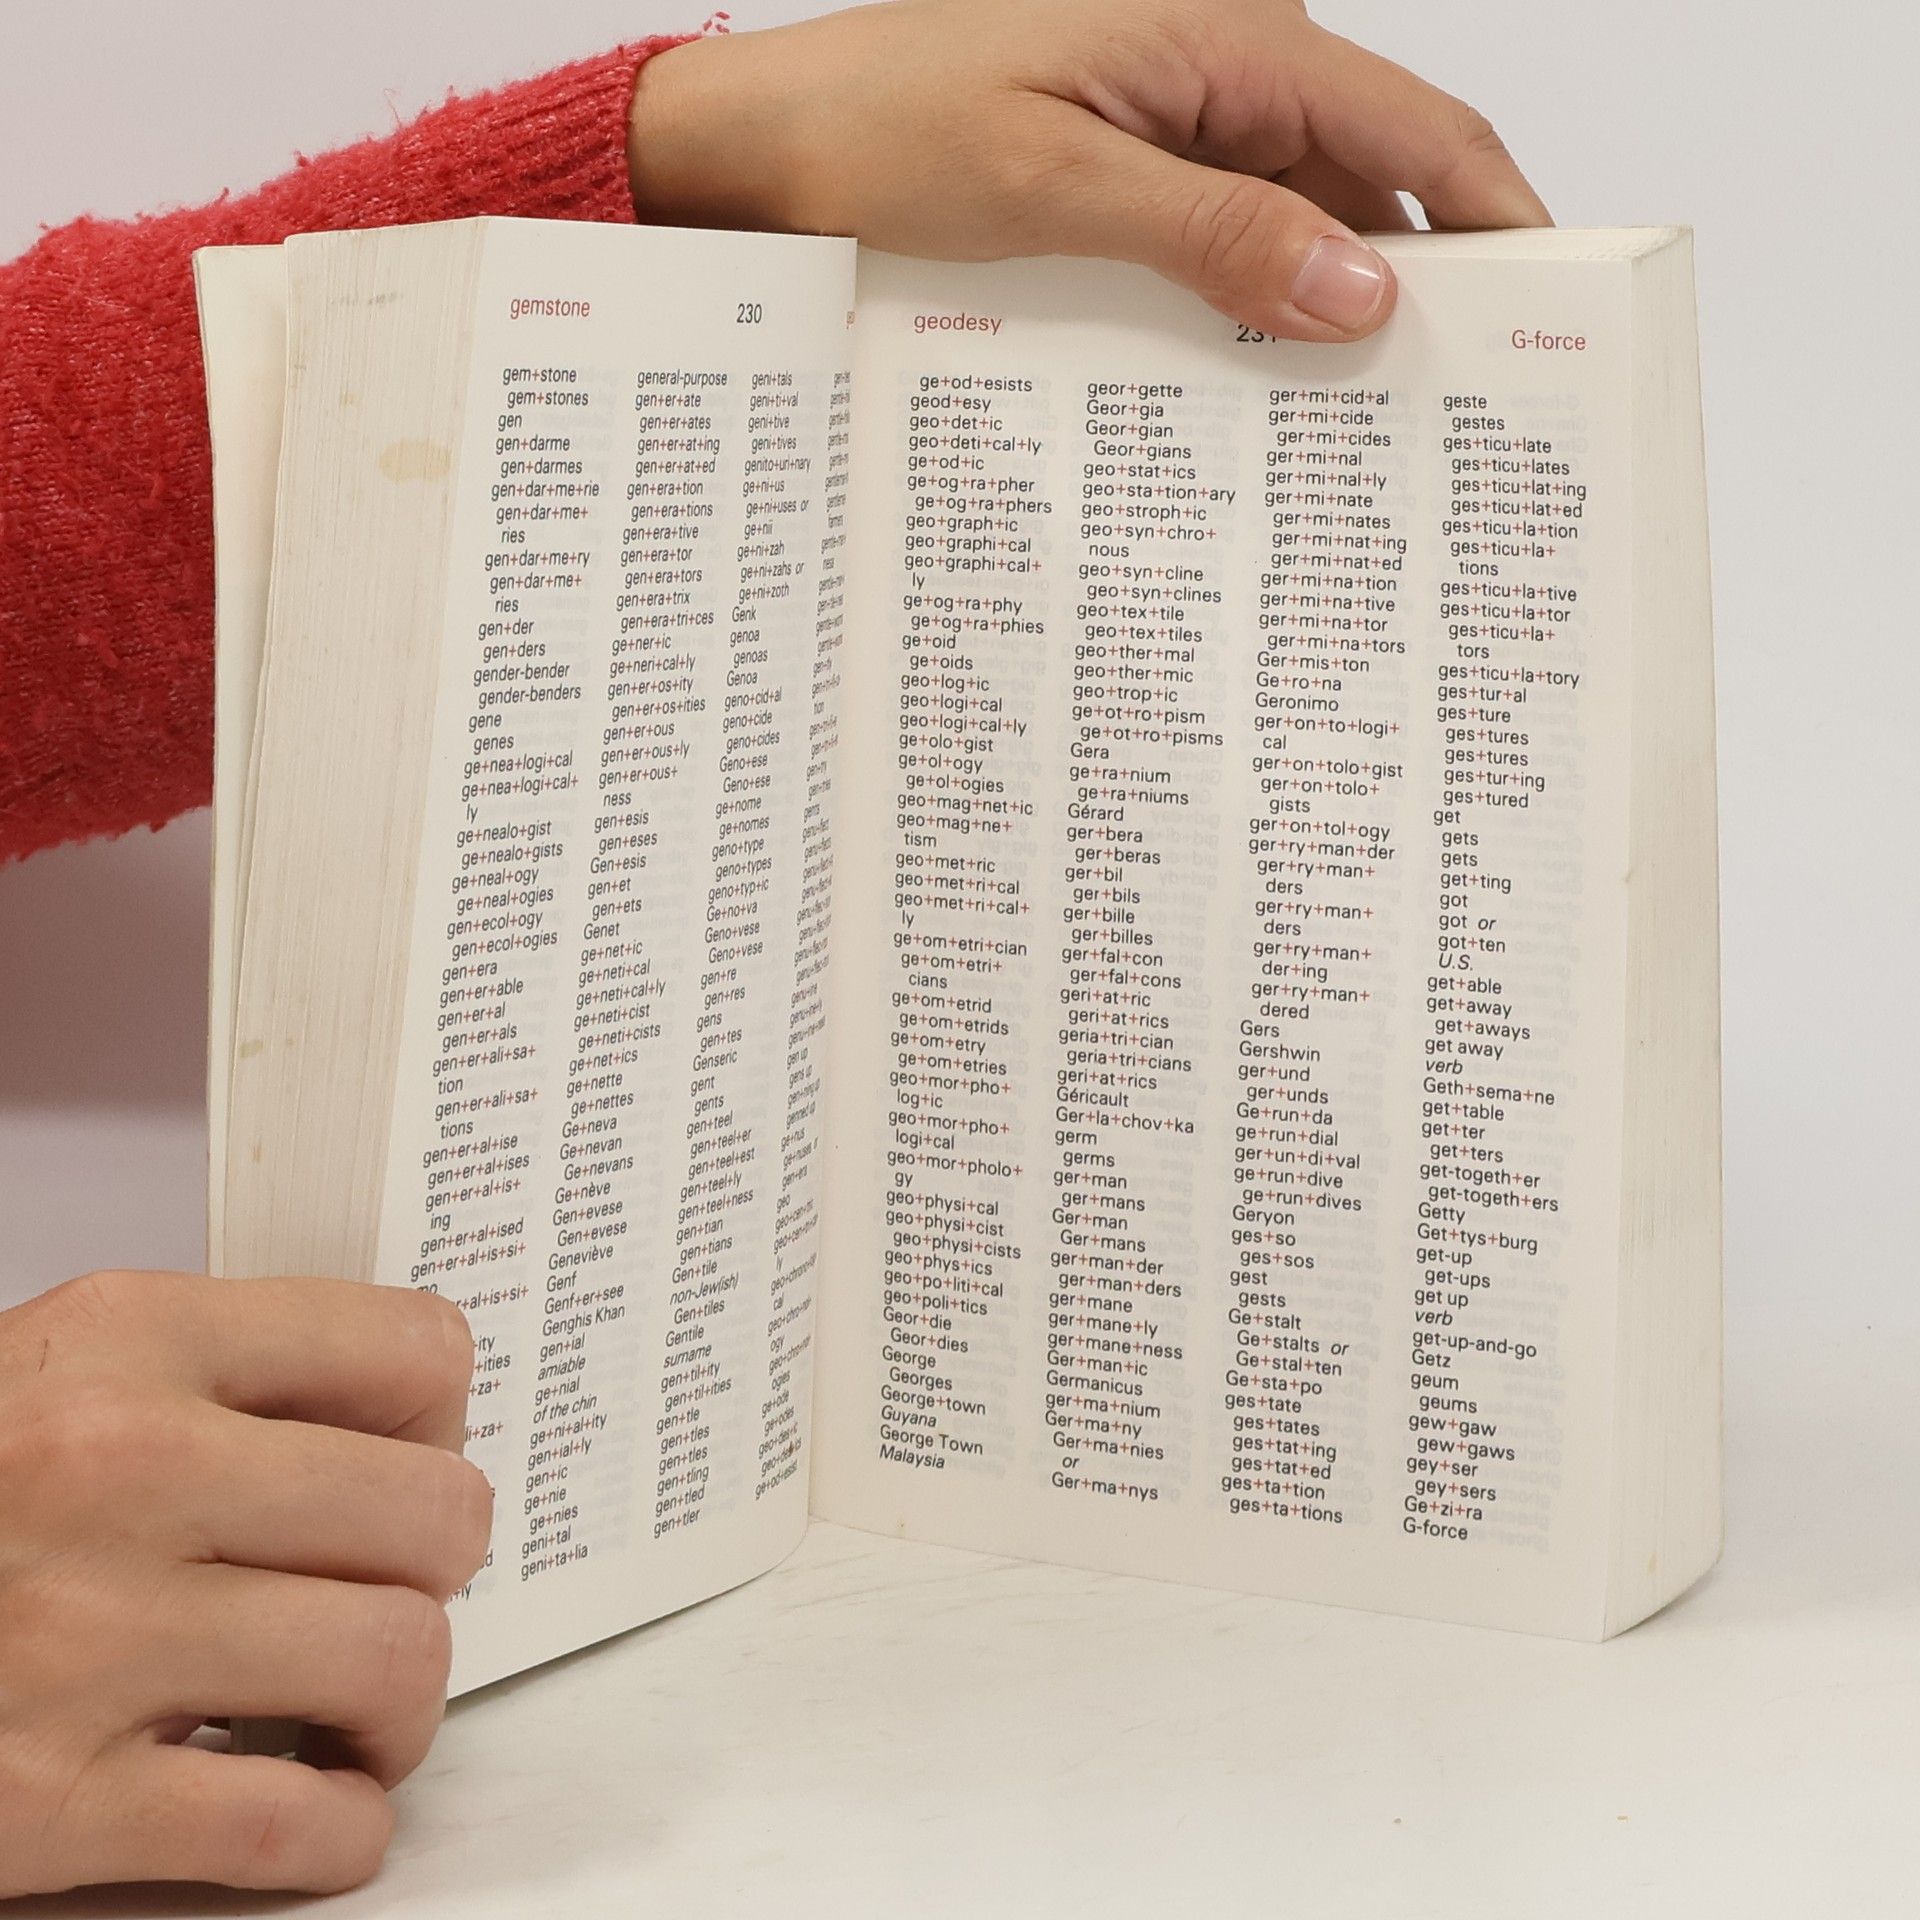 gemstone
230
gem+stone
gem+stones
gen
gen+darme
gen+darmes
gen+dar+me+rie
gen+dar+me+
ries
gen+dar+me+ry
gen+dar+me+
ries
gen+der
gen+ders
gender-bender
gender-benders
gene
genes
ge+nea+logi+cal
ge+nea+logi+cal+
ly
ge+nealo+gist
ge+nealo+gists
ge+neal+ogy
ge+neal+ogies
gen+ecol+ogy
gen+ecol+ogies
gen+era
gen+er+able
gen+er+al
gen+er+als
gen+er+ali+sa+
tion
gen+er+ali+sa+
tions
gen+er+al+ise
gen+er+al+ises
gen+er+al+is+
ing
gen+er+al+ised
gen+er+al+is+si+
general-purpose
gen+er+ate
gen+er+ates
gen+er+at+ing
gen+er+at+ed
gen+era+tion
gen+era+tions
gen+era+tive
gen+era+tor
gen+era+tors
gen+era+trix
gen+era+tri+ces
ge+ner+ic
ge+neri+cal+ly
gen+er+os+ity
gen+er+os+ities
gen+er+ous
gen+er+ous+ly
gen+er+ous+
ness
gen+esis
gen+eses
Gen+esis
gen+et
gen+ets
Genet
ge+net+ic
ge+neti+cal
ge+neti+cal+ly
ge+neti+cist
ge+neti+cists
ge+net+ics
ge+nette
ge+nettes
Ge+neva
Ge+nevan
Ge+nevans
Ge+nève
Gen+evese
Gen+evese
Geneviève
Genf
Genf+er+see
Genghis Khan
gen+ial
amiable
ge+nial
of the chin
ge+ni+al+ity
gen+ial+ly
gen+ic
ge+nie
ge+nies
geni+tal
geni+ta+lia
geni+tals
geni+ti+val
geni+tive
geni+tives
genito+uri+nary
ge+ni+us
ge+ni+uses or
ge+nii
ge+ni+zah
ge+ni+zahs or
ge+ni+zoth
Genk
genoa
genoas
Genoa
geno+cid+al
geno+cide
geno+cides
Geno+ese
Geno+ese
ge+nome
ge+nomes
geno+type
geno+types
geno+typ+ic
Ge+no+va
Geno+vese
Geno+vese
gen+re
gen+res
gens
gen+tes
Genseric
gent
gents
gen+teel
gen+teel+er
gen+teel+est
gen+teel+ly
gen+teel+ness
gen+tian
gen+tians
Gen+tile
non-Jew(ish)
Gen+tiles
Gentile
surname
gen+til+ity
gen+til+ities
gen+tle
gen+tles
gen+tles
gen+tling
gen+tled
gen+tler
geodesy
G-force
ge+od+esists
geod+esy
geo+det+ic
geo+deti+cal+ly
ge+od+ic
ge+og+ra+pher
ge+og+ra+phers
geo+graph+ic
geo+graphi+cal
geo+graphi+cal+
ly
ge+og+ra+phy
ge+og+ra+phies
ge+oid
ge+oids
geo+log+ic
geo+logi+cal
geo+logi+cal+ly
ge+olo+gist
ge+ol+ogy
ge+ol+ogies
geo+mag+net+ic
geo+mag+ne+
tism
geo+met+ric
geo+met+ri+cal
geo+met+ri+cal+
ly
ge+om+etri+cian
ge+om+etri+
cians
ge+om+etrid
ge+om+etrids
ge+om+etry
ge+om+etries
geo+mor+pho+
log+ic
geo+mor+pho+
logi+cal
geo+mor+pholo+
gy
geo+physi+cal
geo+physi+cist
geo+physi+cists
geo+phys+ics
geo+po+liti+cal
geo+poli+tics
Geor+die
Geor+dies
George
Georges
George+town
Guyana
George Town
Malaysia
geor+gette
Geor+gia
Geor+gian
Geor+gians
geo+stat+ics
geo+sta+tion+ary
geo+stroph+ic
geo+syn+chro+
nous
geo+syn+cline
geo+syn+clines
geo+tex+tile
geo+tex+tiles
geo+ther+mal
geo+ther+mic
geo+trop+ic
ge+ot+ro+pism
ge+ot+ro+pisms
Gera
ge+ra+nium
ge+ra+niums
Gérard
ger+bera
ger+beras
ger+bil
ger+bils
ger+bille
ger+billes
ger+fal+con
ger+fal+cons
geri+at+ric
geri+at+rics
geria+tri+cian
geria+tri+cians
geri+at+rics
Géricault
Ger+la+chov+ka
germ
germs
ger+man
ger+mans
Ger+man
Ger+mans
ger+man+der
ger+man+ders
ger+mane
ger+mane+ly
ger+mane+ness
Ger+man+ic
Germanicus
ger+ma+nium
Ger+ma+ny
Ger+ma+nies
or
Ger+ma+nys
ger+mi+cid+al
ger+mi+cide
ger+mi+cides
ger+mi+nal
ger+mi+nal+ly
ger+mi+nate
ger+mi+nates
ger+mi+nat+ing
ger+mi+nat+ed
ger+mi+na+tion
ger+mi+na+tive
ger+mi+na+tor
ger+mi+na+tors
Ger+mis+ton
Ge+ro+na
Geronimo
ger+on+to+logi+
cal
ger+on+tolo+gist
ger+on+tolo+
gists
ger+on+tol+ogy
ger+ry+man+der
ger+ry+man+
ders
ger+ry+man+
ders
ger+ry+man+
der+ing
ger+ry+man+
dered
Gers
Gershwin
ger+und
ger+unds
Ge+run+da
ge+run+dial
ger+un+di+val
ge+run+dive
ge+run+dives
Geryon
ges+so
ges+sos
gest
gests
Ge+stalt
Ge+stalts or
Ge+stal+ten
Ge+sta+po
ges+tate
ges+tates
ges+tat+ing
ges+tat+ed
ges+ta+tion
ges+ta+tions
geste
gestes
ges+ticu+late
ges+ticu+lates
ges+ticu+lat+ing
ges+ticu+lat+ed
ges+ticu+la+tion
ges+ticu+la+
tions
ges+ticu+la+tive
ges+ticu+la+tor
ges+ticu+la+
tors
ges+ticu+la+tory
ges+tur+al
ges+ture
ges+tures
ges+tures
ges+tur+ing
ges+tured
get
gets
gets
get+ting
got
got or
got+ten
U.S.
get+able
get+away
get+aways
get away
verb
Geth+sema+ne
get+table
get+ter
get+ters
get-togeth+er
get-togeth+ers
Getty
Get+tys+burg
get-up
get-ups
get up
verb
get-up-and-go
Getz
geum
geums
gew+gaw
gew+gaws
gey+ser
gey+sers
Ge+zi+ra
G-force